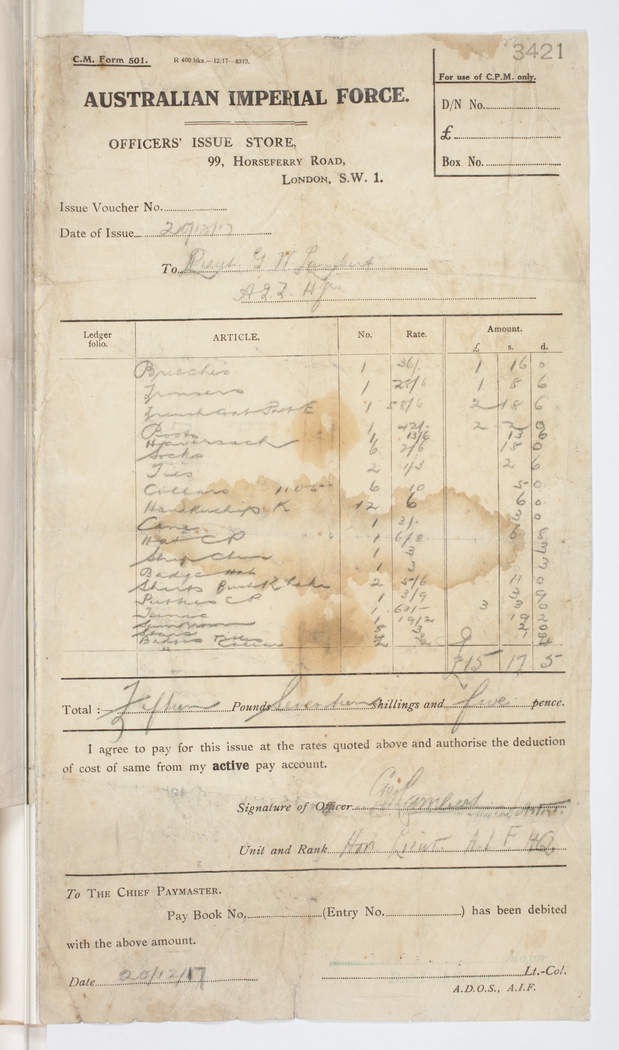 3421
C.M. Form 501. R 400 bks.—12/17—8313.
For use of C.P.M. only.
AUSTRALIAN IMPERIAL FORCE.
D/N No.
£
Box No.
OFFICERS' ISSUE STORE,
99, HORSEFERRY ROAD,
LONDON, S.W. 1.
Issue Voucher No.
Date of Issue 20/12/17
To G W Lambert
Ledger folio. ARTICLE. No. Rate. Amount.
£ s. d.
Breeches 1 36/- 1 16 0
Trousers 1 28/6 1 8 6
1 58/6 2 18 6
Boots 1 42/- 2 2 0
Haversack 1 13/6 13 6
Socks 6 2/6 15 0
Ties 2 1/3 2 6
Collars 6 10 5 0
Handkerchiefs K 12 6 6 0
Cane 1 3/- 3 0
Hat CP 1 6/8 6 8
Strap Chin 1 3 3
Badge Hat 1 3 3
Shirts 2 5/6 11 0
Puttees CP 1 3/9 3 9
Tunic 1 60/- 3 0 0
1 19/2 19 2
Stars
Badges Collar
£15 17 5
Total : Fifteen Pounds Seventeen shillings and five pence.
I agree to pay for this issue at the rates quoted above and authorise the deduction
of cost of same from my active pay account.
Signature of Officer GW Lambert
Unit and Rank Hon Lieut. A I F HQ
To THE CHIEF PAYMASTER.
Pay Book No. (Entry No. ) has been debited
with the above amount.
Date 20/12/17 Lt.-Col.
A.D.O.S., A.I.F.